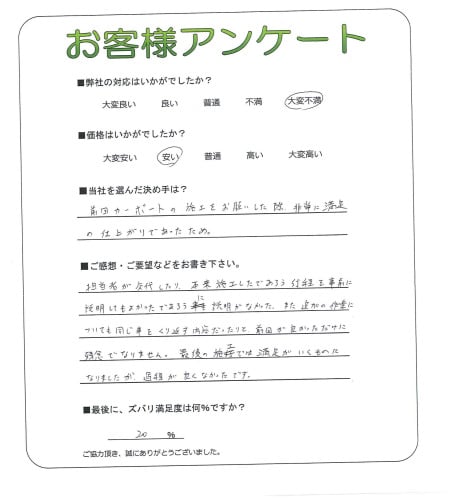 お客様アンケート
■弊社の対応はいかがでしたか？
大変良い 良い 普通 不満 大変不満
■価格はいかがでしたか？
大変安い 安い 普通 高い 大変高い
■当社を選んだ決め手は？
前回カーポートの施工をお願いした際、非常に満足
の仕上がりであったため。
■ご感想・ご要望などをお書き下さい。
担当者が交代したり、本来施工したであろう行程を事前に
説明してもよかったであろうに説明がなかった。また追加の作業に
ついても同じ事をくり返す内容だったりと、前回が良かっただけに
残念でなりません。最後の施工では満足がいくものに
なりましたが、過程が良くなかったです。
■最後に、ズバリ満足度は何％ですか？
20 ％
ご協力頂き、誠にありがとうございました。